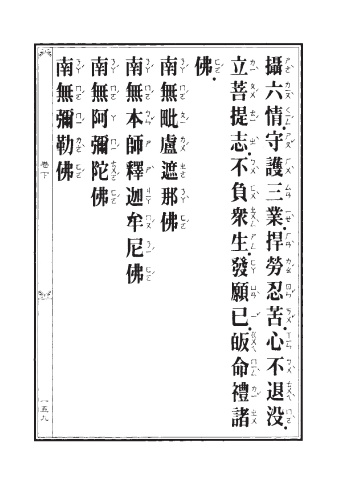 攝六情.守護三業.捍勞忍苦.心不退没.
立菩提志.不負衆生.發願已.皈命禮諸
佛.
南無毗盧遮那佛
南無本師釋迦牟尼佛
南無阿彌陀佛
南無彌勒佛
卷下
一五九